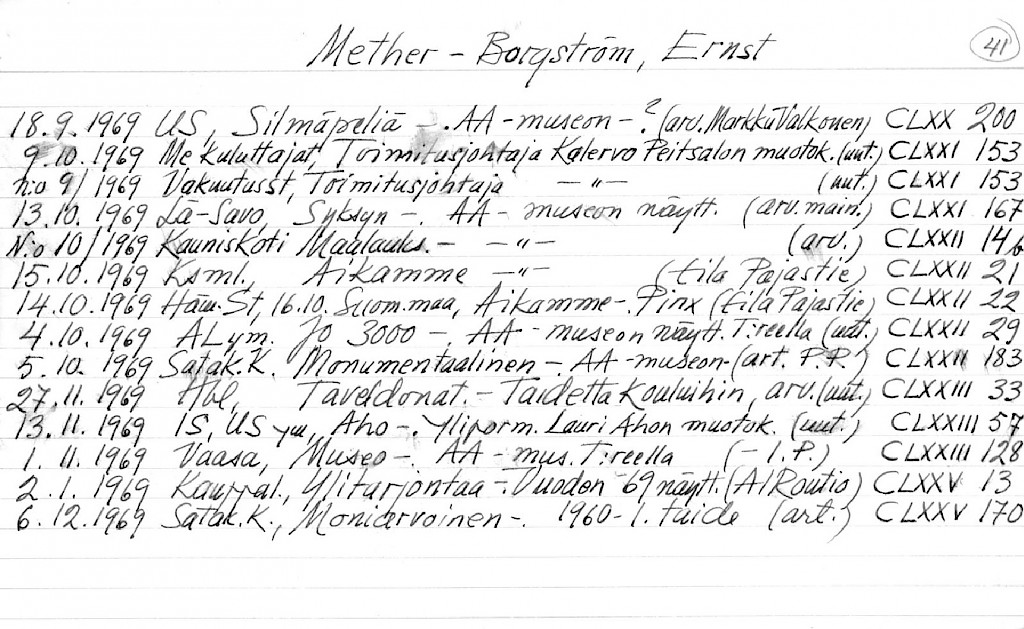 Mether - Borgström, Ernst
41
18.9.1969 US, Silmäpeliä -. AA-museon-? (arv. Markku Valkonen) CLXX 200
9.10.1969 Me kuluttajat, Toimitusjohtaja Kalervo Peitsalon muotok. (uut.) CLXXI 153
n:o 9/1969 Vakuutusst, Toimitusjohtaja -"- (uut.) CLXXI 153
13.10.1969 Lä-Savo, Syksyn -. AA - museon näytt. (arv. main.) CLXXI 167
N:o 10/1969 Kauniskoti Maalauks. - -"- (arv.) CLXXII 146
15.10.1969 Ksml. Aikamme -"- (Eila Pajastie) CLXXII 21
14.10.1969 Häm. St, 16.10. Suom.maa, Aikamme -. Pinx (Eila Pajastie) CLXXII 22
4.10.1969 ALym. Jo 3000 -. AA - museon näytt. T:reella (uut.) CLXXII 29
5.10.1969 Satak.K. Monumentaalinen -. AA-museon- (art. P.P.) CLXXII 183
27.11.1969 Hbl, Taveldonat. - Taidetta kouluihin, arv. (uut.) CLXXIII 33
13.11.1969 IS, US ym, Aho -. Yliporm. Lauri Ahon muotok. (uut.) CLXXIII 57
1.11.1969 Vaasa, Museo -. AA - mus. T:reella (- I.P.) CLXXIII 128
2.1.1969 Kauppal., Ylitarjontaa -. Vuoden -69 näytt. (AIRoutio) CLXXV 13
6.12.1969 Satak.K., Moniarvoinen -. 1960-l. taide (art.) CLXXV 170